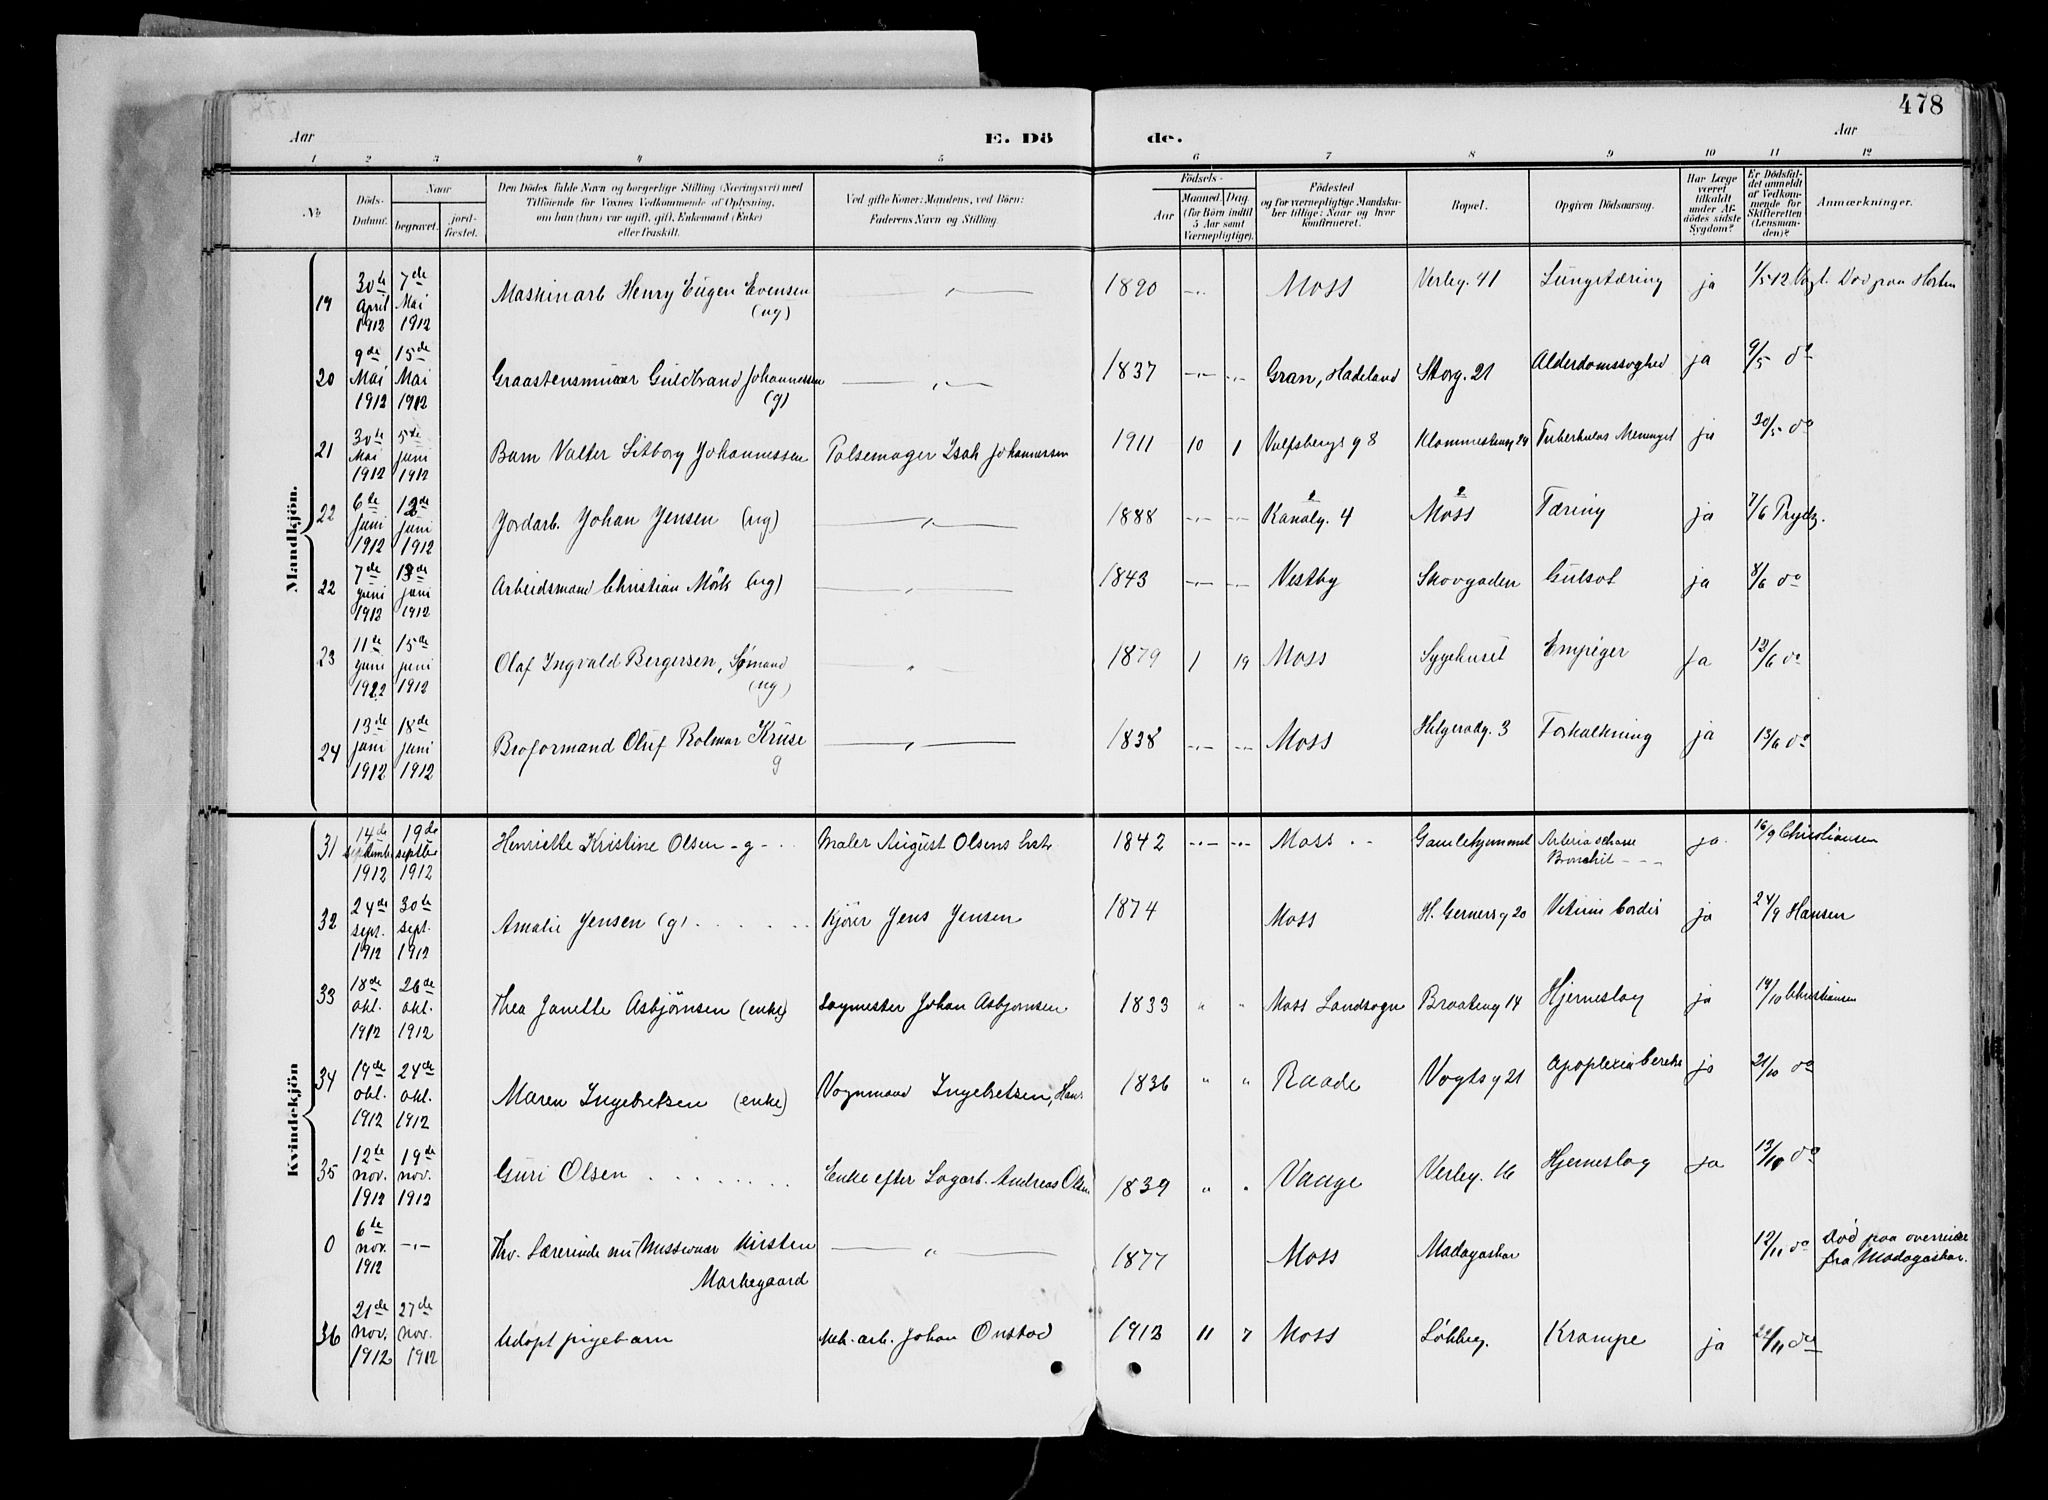 478
Aar
E. Dö
de.
Aar
1 2 3 4 5 6 7 8 9 10 11 12
No.
Döds-Datum.
Naar
begravet.
jord-fæstet.
Den Dödes fulde Navn og borgerlige Stilling (Næringsvei) med
Tilföiende for Voxnes Vedkommende af Oplysning,
om han (hun) var ugift, gift, Enkemand (Enke)
eller fraskilt.
Ved gifte Koner: Mandens, ved Börn:
Faderens Navn og Stilling.
Födsels-
Aar
Maaned. Dag.
(for Börn indtil
5 Aar samt
Værnepligtige).
Födested
og for værnepligtige Mandska-
ber tillige: Naar og hvor
konfirmeret.
Bopæl.
Opgiven Dödsaarsag.
Har Læge
været
tilkaldt
under Af-
dödes sidste
Sygdom?
Er Dödsfal-
det anmeldt
af Vedkom-
mende for
Skifteretten
(Lensman-
den)?
Anmærkninger.
Mandkjön.
19 30te April 1912 7de Mai 1912 Maskinarb Henry Eugen Evensen (ug) 1890 Moss Verleg. 41 Lungetæring ja 1/5 12 Vogt. Död paa Horten
20 9de Mai 1912 15de Mai 1912 Graastensmurer Guldbrand Johannessen (g) 1837 Gran, Hadeland Storg. 21 Alderdomssvaghed ja 9/5 do
21 30te Mai 1912 5te juni 1912 Barn Valter Sitborg Johannessen Pølsemager Isak Johannessen 1911 10 1 Vulfsbergs g 8 Tuberkuløs Meninget ja 30/5 do
22 6te juni 1912 12de juni 1912 Jordarb. Johan Jensen (ug) 1888 Kanalg. 4 Moss Tæring ja 7/6
22 7de juni 1912 13de juni 1912 Arbeidsmand Christian Mörk (ug) 1843 Vestby Skovgaden Gulsot ja 8/6 do
23 11te juni 1912 15de juni 1912 Olaf Ingvald Bergersen, Sömand (ug) 1879 1 19 Moss Sygehuset Empiger ja 12/6 do
24 13de juni 1912 18de juni 1912 Broformand Oluf Rolmar Kruse g 1838 Moss Helgerødg. 3 Forkalkning ja 13/6 do
Kvindekjön
31 14de septembr 1912 19de septbr 1912 Henriette Kristine Olsen - g - Maler August Olsens hstr 1842 Moss Gamlehjemmet Bronchit ja. 16/9 Christiansen
32 24de sept. 1912 30te sept. 1912 Amalie Jensen (g) Kjörer Jens Jensen 1874 Moss H. Gerners g 20 Vitium Cordis ja 24/9 Hansen
33 18de okt. 1912 26de okt. 1912 Thea Janette Asbjørnsen (enke) Sagmester Johan Asbjørnsen 1833 " " Moss Landsogn Braateng 14 Hjerneslag ja 19/10 Christiansen
34 19de okt. 1912 24de okt. 1912 Maren Ingebretsen (enke) Vognmand Ingebretsen, Hans 1836 " " Raade Vogts g 21 Apoplexia Cerebr ja 21/10 do
35 12te nov. 1912 19de nov. 1912 Guri Olsen Enke efter Sagarb. Andreas Olsen 1839 " " Vaage Verleg. 16 Hjerneslag ja 13/11 do
0 6te nov. 1912 Frv. Lærerinde nu Missionær Kirsten Markegaard 1877 Moss Madagaskar 12/11 do Död paa overreise fra Madagaskar.
36 21de nov. 1912 27de nov. 1912 Udøpt pigebarn Mek. arb. Johan Onstad 1912 11 7 Moss Løkkeg. Krampe ja 22/11 do